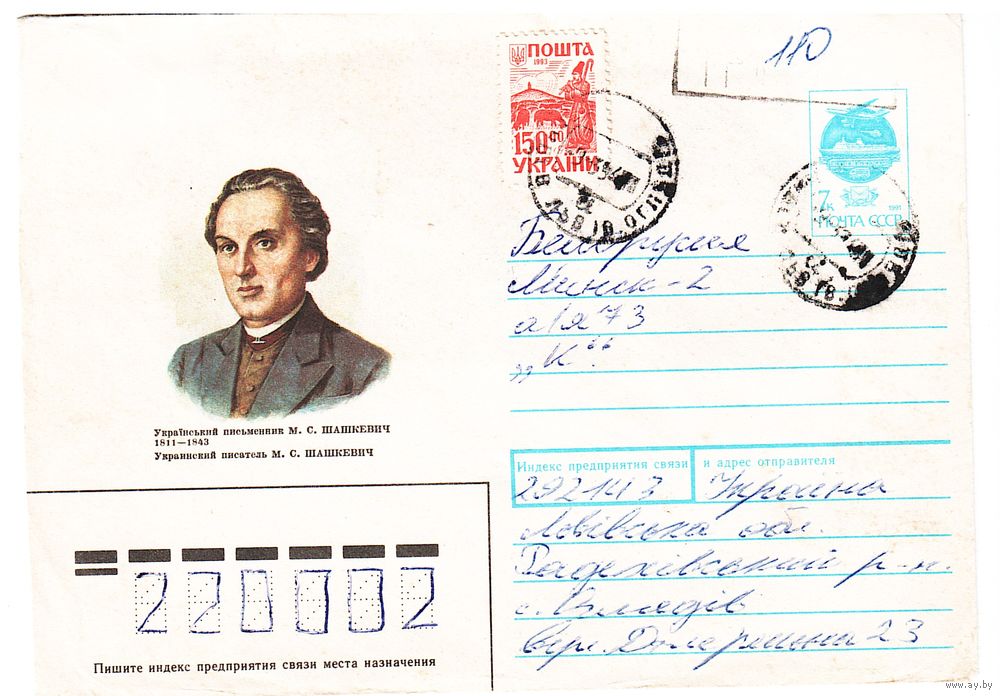 110
ПОШТА
1993
150
УКРАЇНИ
7к
1991
ПОЧТА СССР
Белоруссия
Минск-2
а/я 73
„К“.
Український письменник М. С. ШАШКЕВИЧ
1811—1843
Украинский писатель М. С. ШАШКЕВИЧ
Индекс предприятия связи и адрес отправителя
292143 Україна
Львівська обл.
Радехівський р-н.
с.
вул. 23
220002
Пишите индекс предприятия связи места назначения
www.ay.by